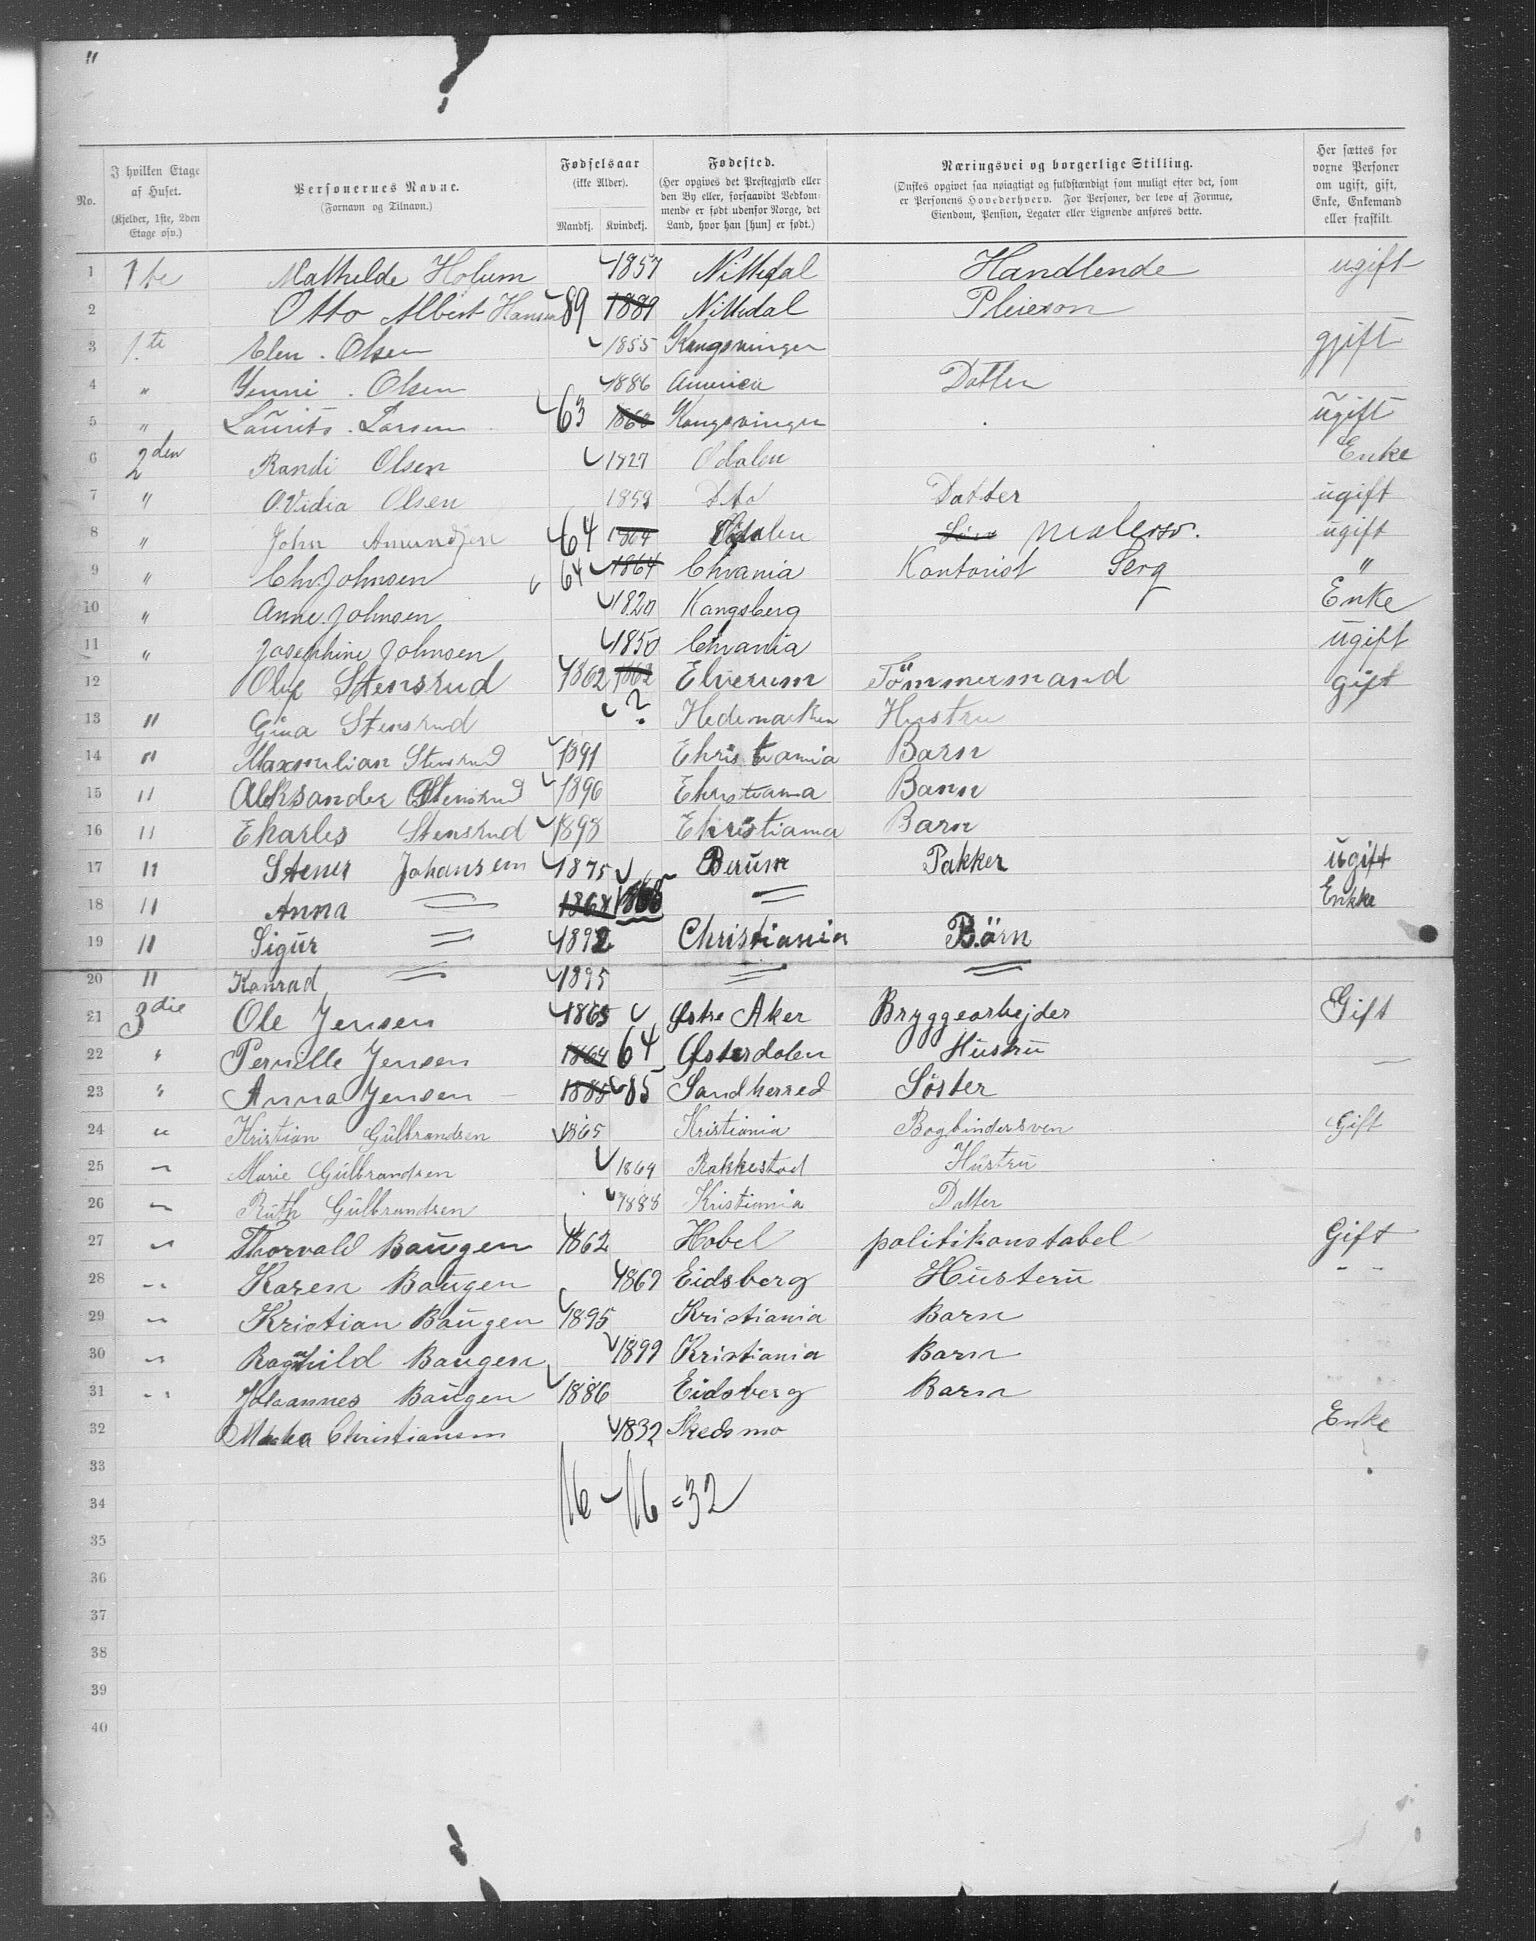 "
No.
I hvilken Etage af Huset. (Kjelder, 1ste, 2den Etage osv.)
Personernes Navne. (Fornavn og Tilnavn.)
Fødselsaar (ikke Alder). Mandkj. Kvindekj.
Fødested. (Her opgives det Prestegjæld eller den By eller, forsaavidt Vedkommende er født udenfor Norge, det Land, hvor han [hun] er født.)
Næringsvei og borgerlige Stilling. (Ønskes opgivet saa nøiagtigt og fuldstændigt som muligt efter det, som er Personens Hovederhverv. For Personer, der leve af Formue, Eiendom, Pension, Legater eller Lignende anføres dette.
Her sættes for voxne Personer om ugift, gift, Enke, Enkemand eller fraskilt.
1 1te Mathilde Holum 1857 Nittedal Handlende ugift
2 Otto Albert Hansen 89 1889 Nittedal Pleiesøn
3 1.te Elen. Olsen 1855 Kongsvinger gjift
4 " Jenni. Olsen 1886 America Datter
5 " Laurits. Larsen 63 1863 Kongsvinger ugift
6 2den Randi Olsen 1827 Odalen Enke
7 " Ovidia Olsen Dto Datter ugift
8 " John Amundsen 64 1864 Odalen Malersv. ugift
9 " Chr Johnsen 64 1864 Chrania Kontorist Serg "
10 " Anne Johnsen 1820 Kongsberg Enke
11 " Josephine Johnsen 1850 Chrania ugift
12 Oluf Stensrud 1862 1862 Elverum Tömmermand gift
13 " Gina Stensrud ? Hedemarken Hustru
14 " Maxmilian Stensrud 1891 Christiania Barn
15 " Aleksander Stensrud 1896 Christiania Barn
16 " Charles Stensrud 1898 Christiania Barn
17 " Stener Johansen 1875 Berum Pakker ugift
18 " Anna = 1868 = Enkke
19 " Sigur = 1892 Christiania Börn
20 " Konrad = 1895 = =
21 3die Ole Jensen 1865 Østre Aker Bryggearbejder Gift
22 " Pernille Jensen 1864 64 Østerdalen Hustru —
23 " Anna Jensen 1885 85 Sandherred Söster
24 " Kristian Gulbrandsen 1865 Kristiania Bogbindersven Gift
25 " Marie Gulbrandsen 1864 Rakkestad Hustru
26 " Ruth Gulbrandsen 1888 Kristiania Datter
27 " Thorvald Baugen 1862 Hobel politikonstabel Gift
28 " Karen Baugen 1867 Eidsberg Husteru " "
29 " Kristian Baugen 1895 Kristiania Barn
30 " Ragnhild Baugen 1899 Kristiania Barn
31 " Johannes Baugen 1886 Eidsberg Barn
32 Christiansen 1832 Skedsmo Enke
33
34 16 - 16 = 32
35
36
37
38
39
40